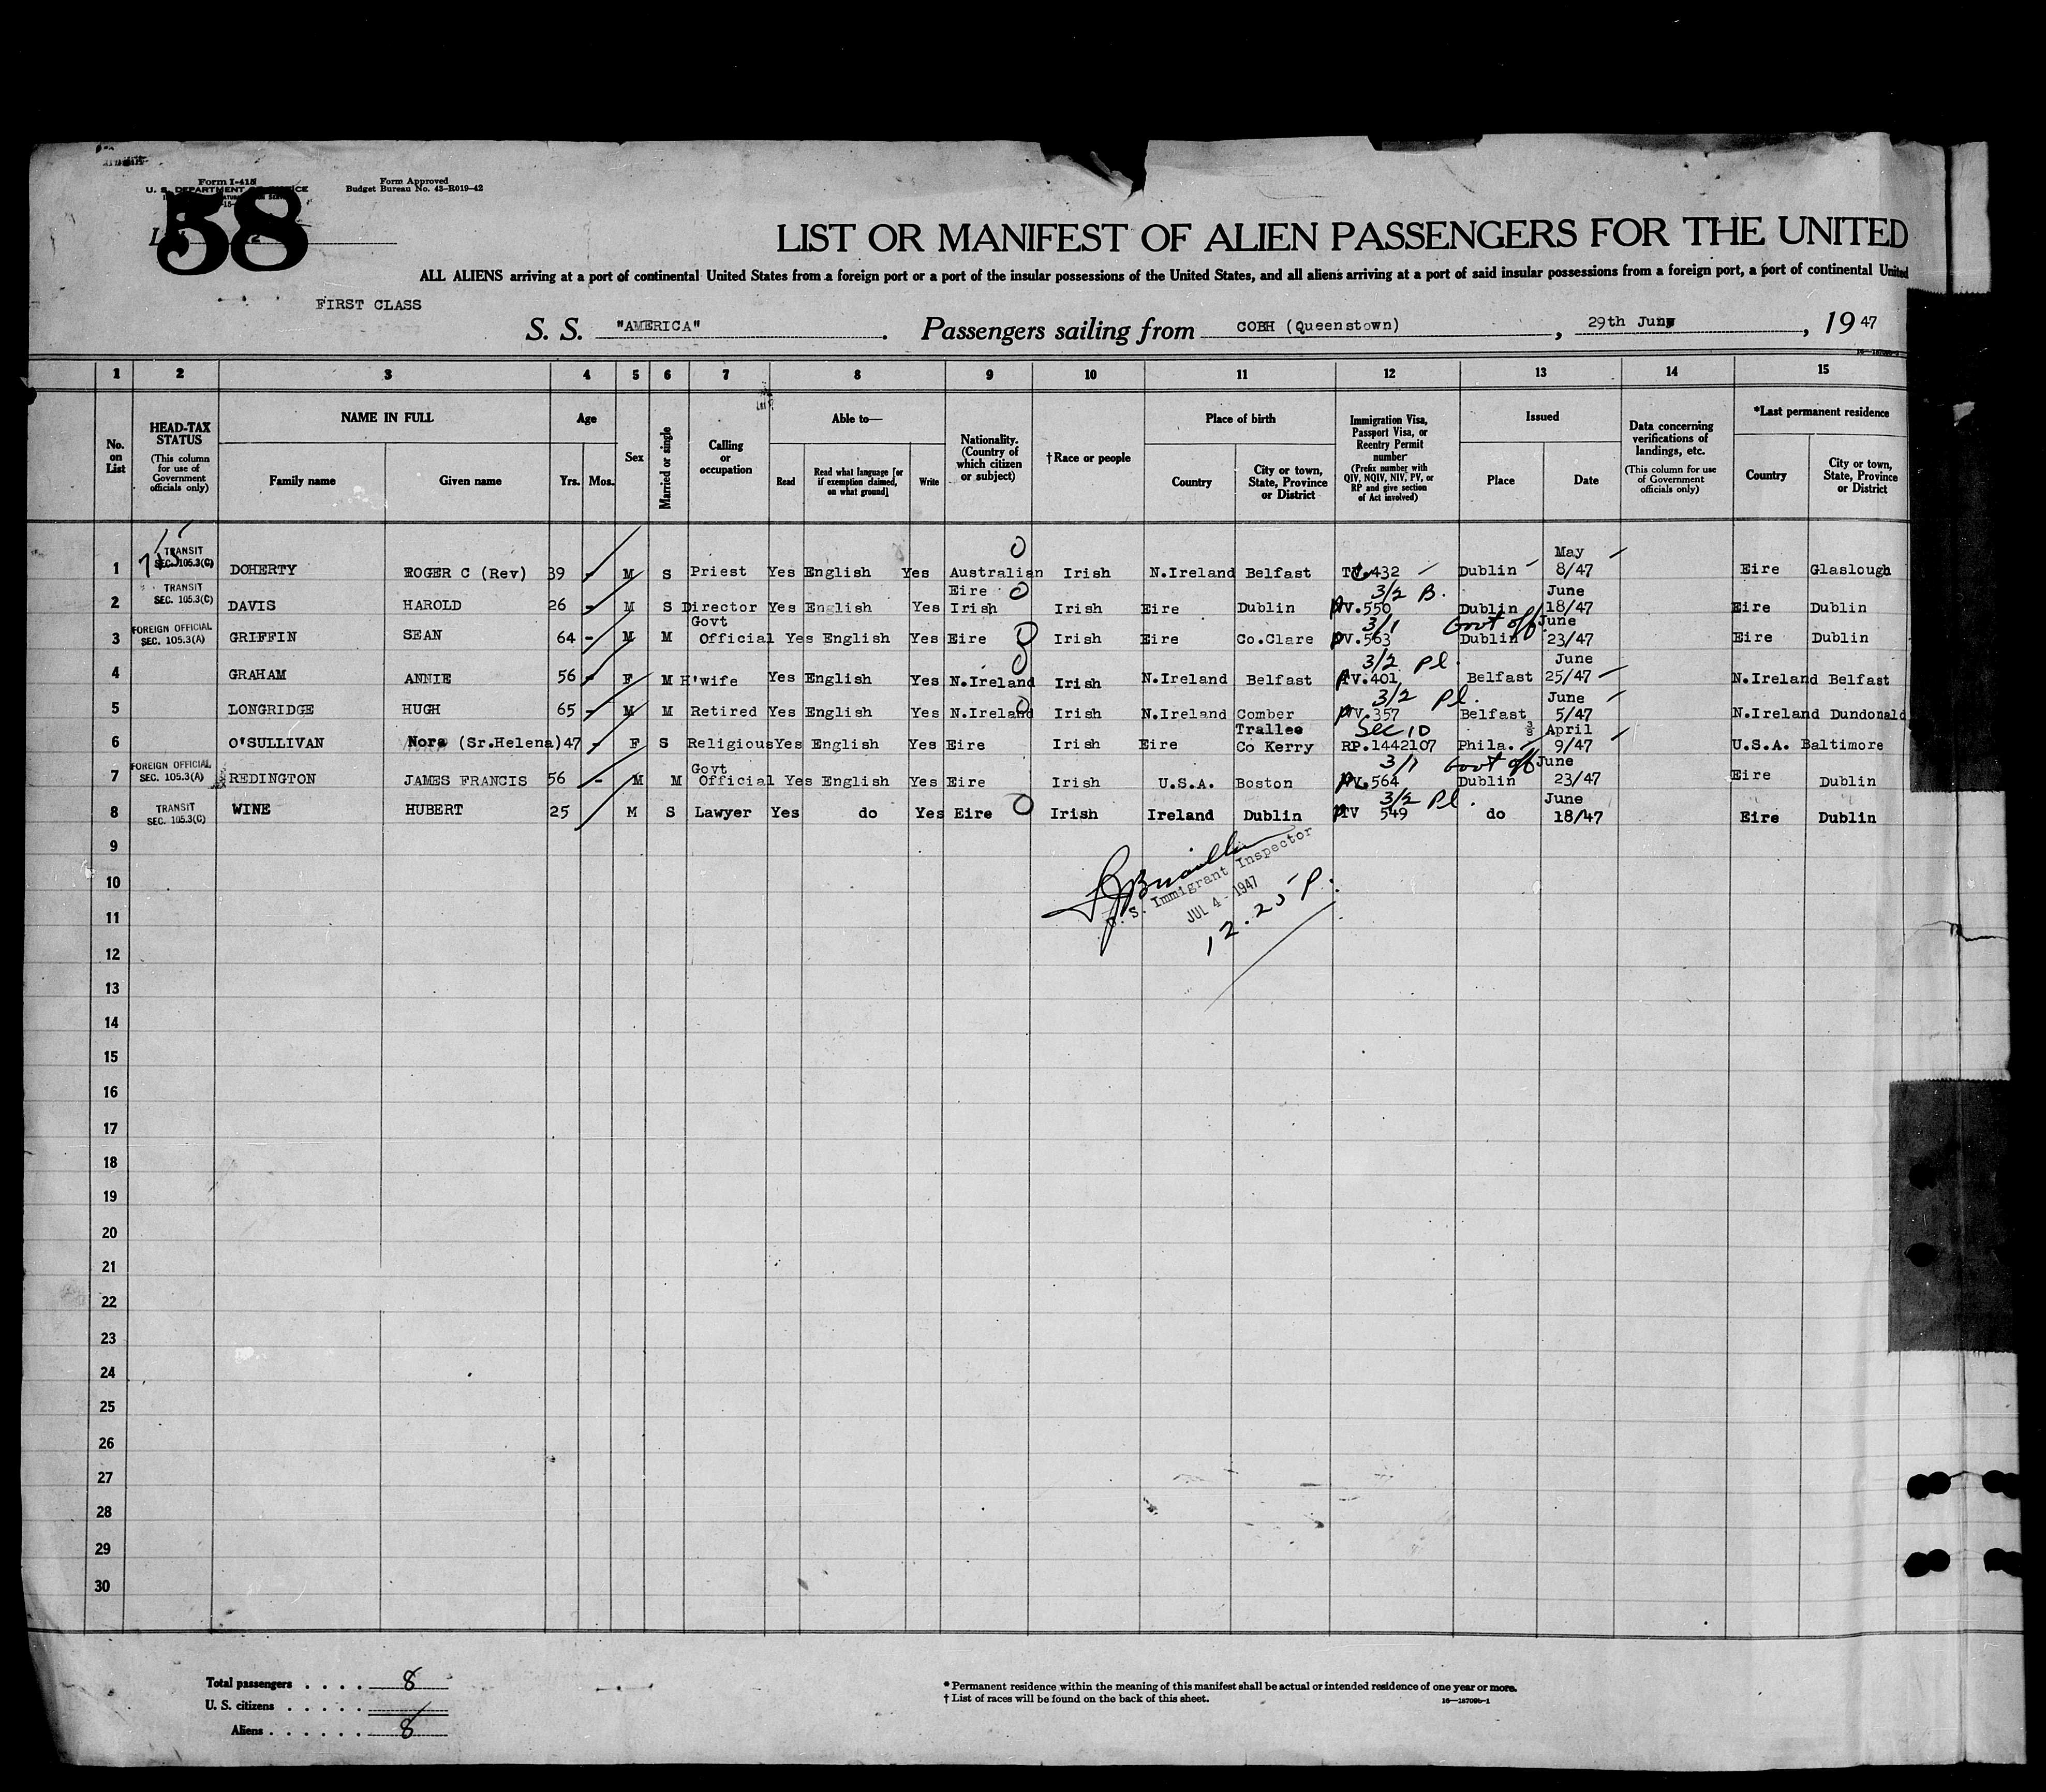 Form I-415
U. S. DEPARTMENT OF JUSTICE
Form Approved
Budget Bureau No. 43-R019-42
58
LIST OR MANIFEST OF ALIEN PASSENGERS FOR THE UNITED
ALL ALIENS arriving at a port of continental United States from a foreign port or a port of the insular possessions of the United States, and all aliens arriving at a port of said insular possessions from a foreign port, a port of continental United
FIRST CLASS
S. S. "AMERICA". Passengers sailing from COBH (Queenstown), 29th June, 19 47
1 2 3 4 5 6 7 8 9 10 11 12 13 14 15
No. on List
HEAD-TAX STATUS (This column for use of Government officials only)
NAME IN FULL Family name Given name
Age Yrs. Mos.
Sex
Married or single
Calling or occupation
Able to— Read Read what language [or if exemption claimed, on what ground] Write
Nationality. (Country of which citizen or subject)
†Race or people
Place of birth Country City or town, State, Province or District
Immigration Visa, Passport Visa, or Reentry Permit number (Prefix number with QIV, NQIV, NIV, PV, or RP and give section of Act involved)
Issued Place Date
Data concerning verifications of landings, etc. (This column for use of Government officials only)
*Last permanent residence Country City or town, State, Province or District
1 TRANSIT SEC. 105.3(C) DOHERTY ROGER C (Rev) 39 - M S Priest Yes English Yes Australian Irish N.Ireland Belfast TV.432 Dublin May 8/47 Eire Glaslough
2 TRANSIT SEC. 105.3(C) DAVIS HAROLD 26 - M S Director Yes English Yes Eire Irish Irish Eire Dublin 3/2 B. PV.550 Dublin June 18/47 Eire Dublin
3 FOREIGN OFFICIAL SEC. 105.3(A) GRIFFIN SEAN 64 - M M Govt Official Yes English Yes Eire Irish Eire Co.Clare 3/1 PV.563 Govt off Dublin June 23/47 Eire Dublin
4 GRAHAM ANNIE 56 - F M H'wife Yes English Yes N.Ireland Irish N.Ireland Belfast 3/2 Pl. PV.401 Belfast June 25/47 N.Ireland Belfast
5 LONGRIDGE HUGH 65 - M M Retired Yes English Yes N.Ireland Irish N.Ireland Comber 3/2 Pl. PV.357 Belfast June 5/47 N.Ireland Dundonald
6 O'SULLIVAN Nora (Sr.Helena) 47 - F S Religious Yes English Yes Eire Irish Eire Trallee Co Kerry Sec 10 RP.1442107 Phila. April 9/47 U.S.A. Baltimore
7 FOREIGN OFFICIAL SEC. 105.3(A) REDINGTON JAMES FRANCIS 56 - M M Govt Official Yes English Yes Eire Irish U.S.A. Boston 3/1 PV.564 Govt off Dublin June 23/47 Eire Dublin
8 TRANSIT SEC. 105.3(C) WINE HUBERT 25 M S Lawyer Yes do Yes Eire Irish Ireland Dublin 3/2 Pl. PTV 549 do June 18/47 Eire Dublin
9
U. S. Immigrant Inspector
10
JUL 4 - 1947
11
12.25 P.
12
13
14
15
16
17
18
19
20
21
22
23
24
25
26
27
28
29
30
Total passengers . . . . 8
U. S. citizens . . . . .
Aliens . . . . . . 8
* Permanent residence within the meaning of this manifest shall be actual or intended residence of one year or more.
† List of races will be found on the back of this sheet.
16—18709b-1